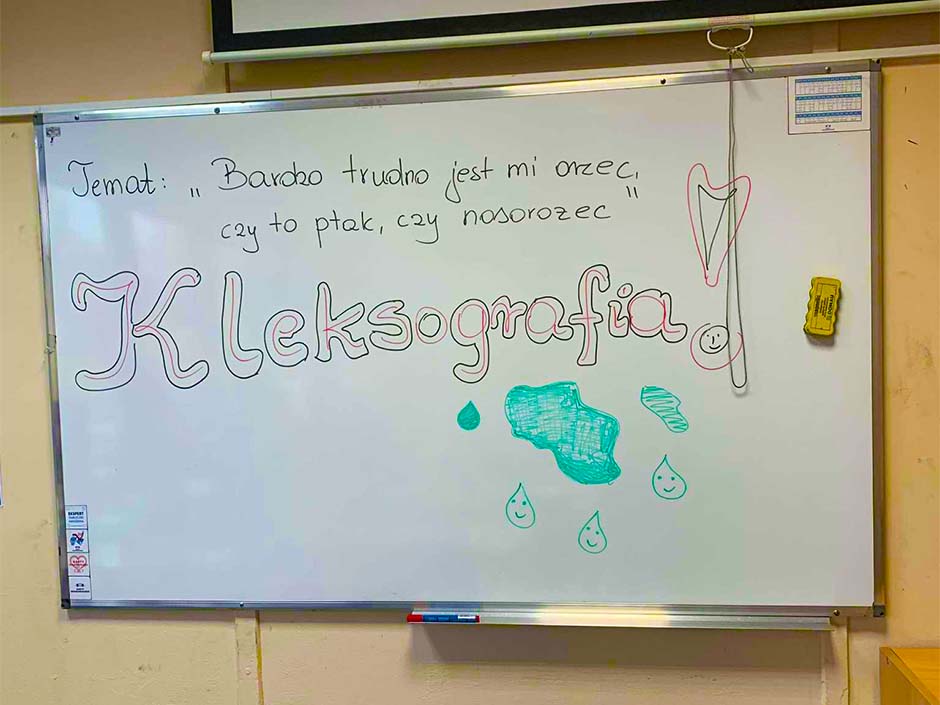 Temat: „ Bardzo trudno jest mi orzec,
czy to ptak, czy nosorożec "
Kleksografia!
EKSPERT